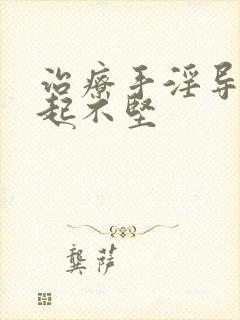 治療手淫导
起不堅
龔萨